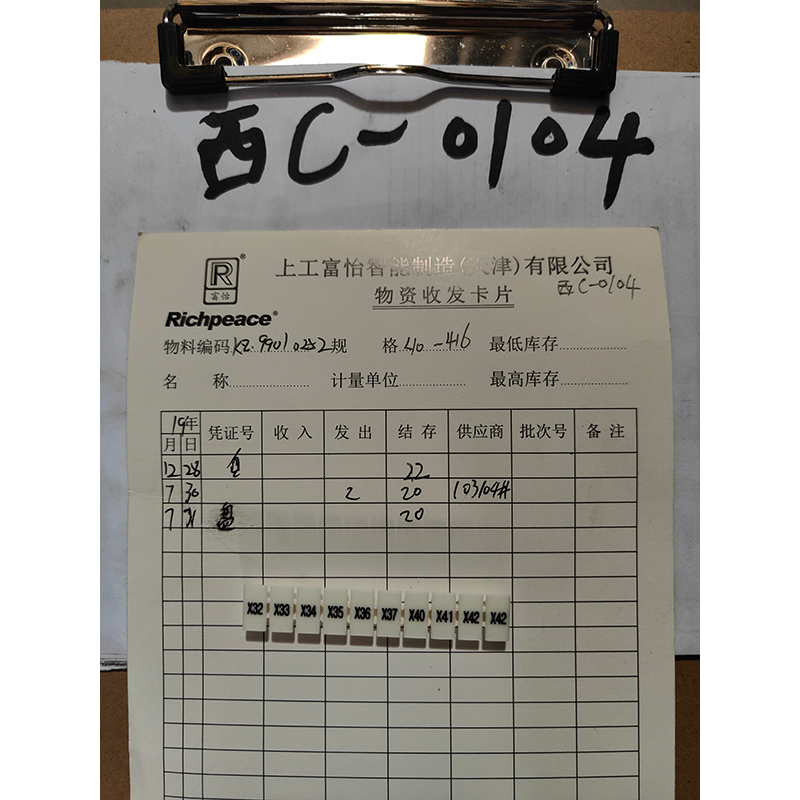 西C-0104
R®
富怡
上工富怡智能制造(天津)有限公司
物资收发卡片
西C-0104
Richpeace®
物料编码KZ.99010252 规 格 40-416 最低库存
名 称 计量单位 最高库存
19年 凭证号 收入 发出 结存 供应商 批次号 备注
月 日
12 28 22
7 30 2 20 103104#
7 31 盘 20
X32 X33 X34 X35 X36 X37 X40 X41 X42 X42